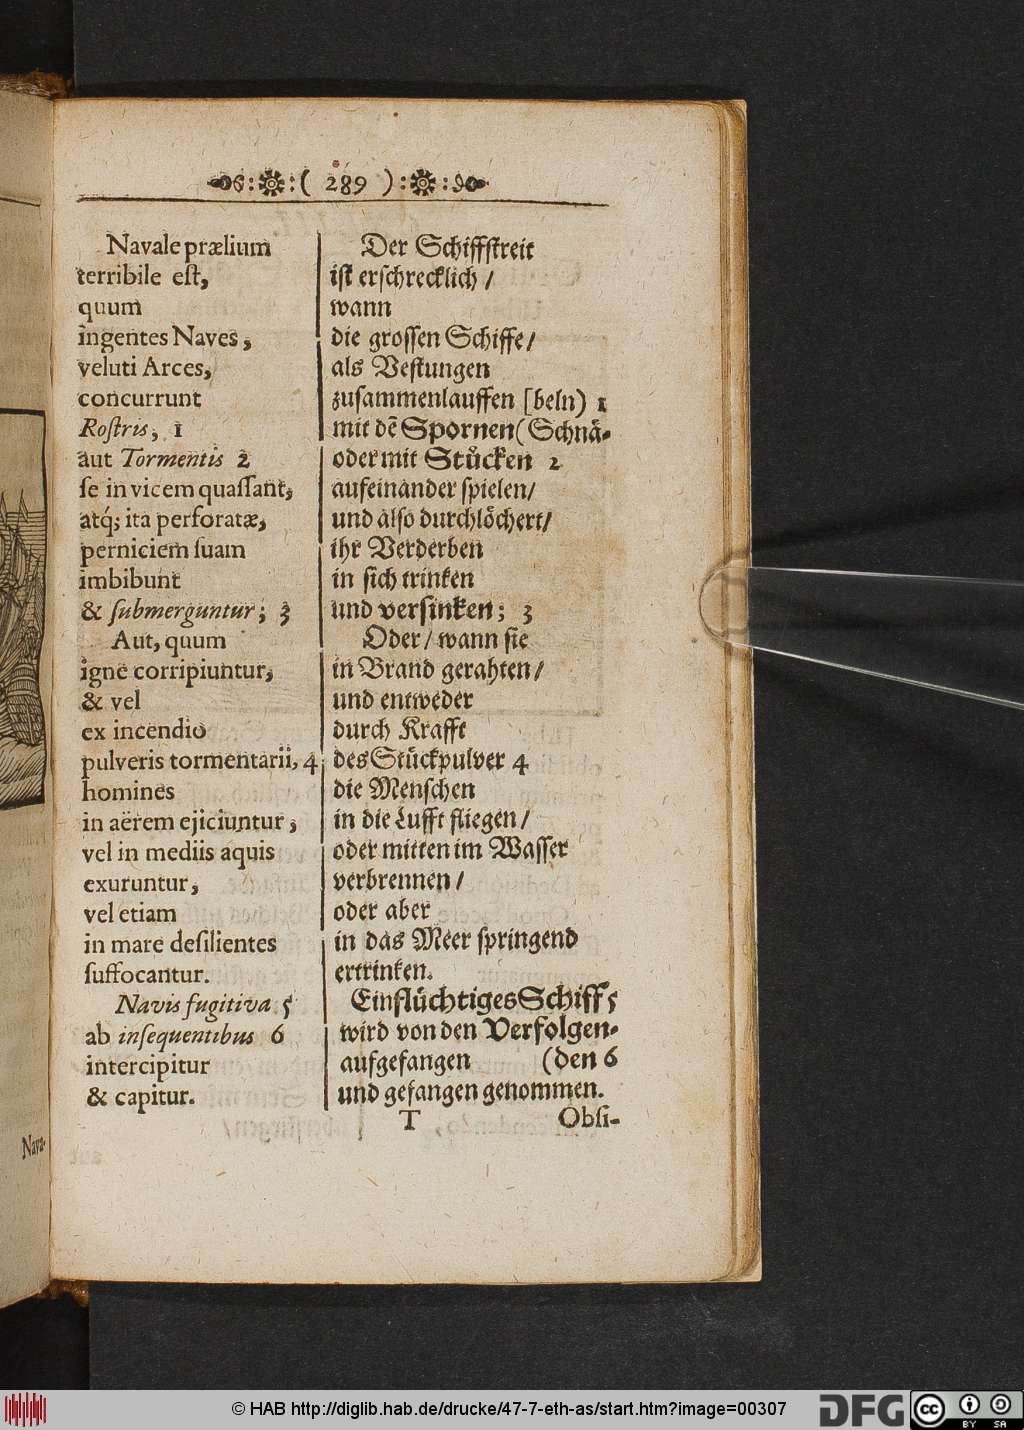 ( 289 )
Navale prælium
terribile eſt,
quum
ingentes Naves,
veluti Arces,
concurrunt
Roſtris, 1
aut Tormentis 2
ſe in vicem quaſſant,
atq́; ita perforatæ,
perniciem ſuam
imbibunt
& ſubmerguntur; 3
Aut, quum
igne corripiuntur,
& vel
ex incendio
pulveris tormentarii, 4
homines
in aërem ejiciuntur,
vel in mediis aquis
exuruntur,
vel etiam
in mare deſilientes
ſuffocantur.
Navis fugitiva 5
ab inſequentibus 6
intercipitur
& capitur.
Der Schiffſtreit
iſt erſchrecklich /
wann
die groſſen Schiffe/
als Veſtungen
zuſammenlauffen [beln) 1
mit dē Spornen (Schnä-
oder mit Stůcken 2
aufeinander ſpielen/
und alſo durchlöchert/
ihr Verderben
in ſich trinken
und verſinken; 3
Oder / wann ſie
in Brand gerahten/
und entweder
durch Krafft
des Stückpulver 4
die Menſchen
in die Lufft fliegen/
oder mitten im Waſſer
verbrennen /
oder aber
in das Meer ſpringend
ertrinken.
Ein flüchtiges Schiff 5
wird von den Verfolgen-
aufgefangen (den 6
und gefangen genommen.
T Obſi-
Nava-
© HAB http://diglib.hab.de/drucke/47-7-eth-as/start.htm?image=00307
DFG
cc BY SA